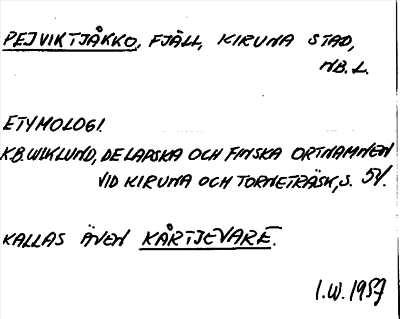 PEJVIKTJÅKKO, FJÄLL, KIRUNA STAD,
NB. L.
ETYMOLOGI.
K.B. WIKLUND, DE LAPSKA OCH FINSKA ORTNAMNEN
VID KIRUNA OCH TORNETRÄSK, S. 51.
KALLAS ÄVEN KÅRTJEVARE.
I.W. 1957